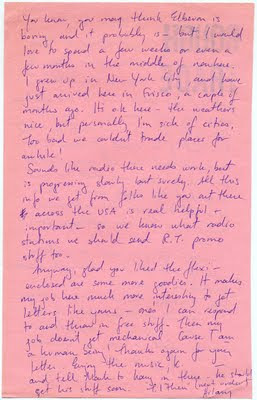 You know, you may think Elberon is
boring and it probably is - but I would
love to spend a few weeks or even a
few months in the middle of nowhere.
I grew up in New York City and have
just arrived here in Frisco, a couple of
months ago. It's ok here - the weather's
nice, but personally I'm sick of cities.
Too bad we couldn't trade places for
awhile!
Sounds like radio there needs work, but
is progressing slowly but surely. All this
info we get from folks like you out there
& across the USA is real helpful &
important - so we know what radio
stations we should send R.T. promo
stuff too.
Anyway, glad you liked the flexi -
enclosed are some more goodies. It makes
my job here much more interesting to get
letters like yours - ones I can respond
to and throw in free stuff. Then my
job doesn't get mechanical 'cause I am
a human being. Thanks again for your
letter. Enjoy the music &
and tell Mark to hang in there - he should
get his stuff soon.
Hilary